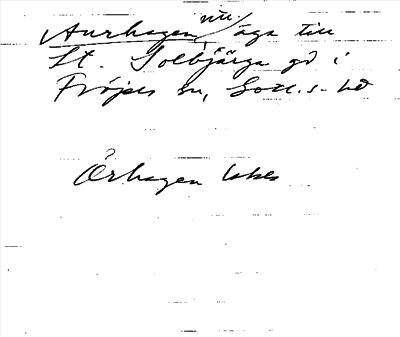 Aurhagen nu äga till
St. Solbjärga gd i
Fröjels sn, Gotl.s. hd
Örhagen